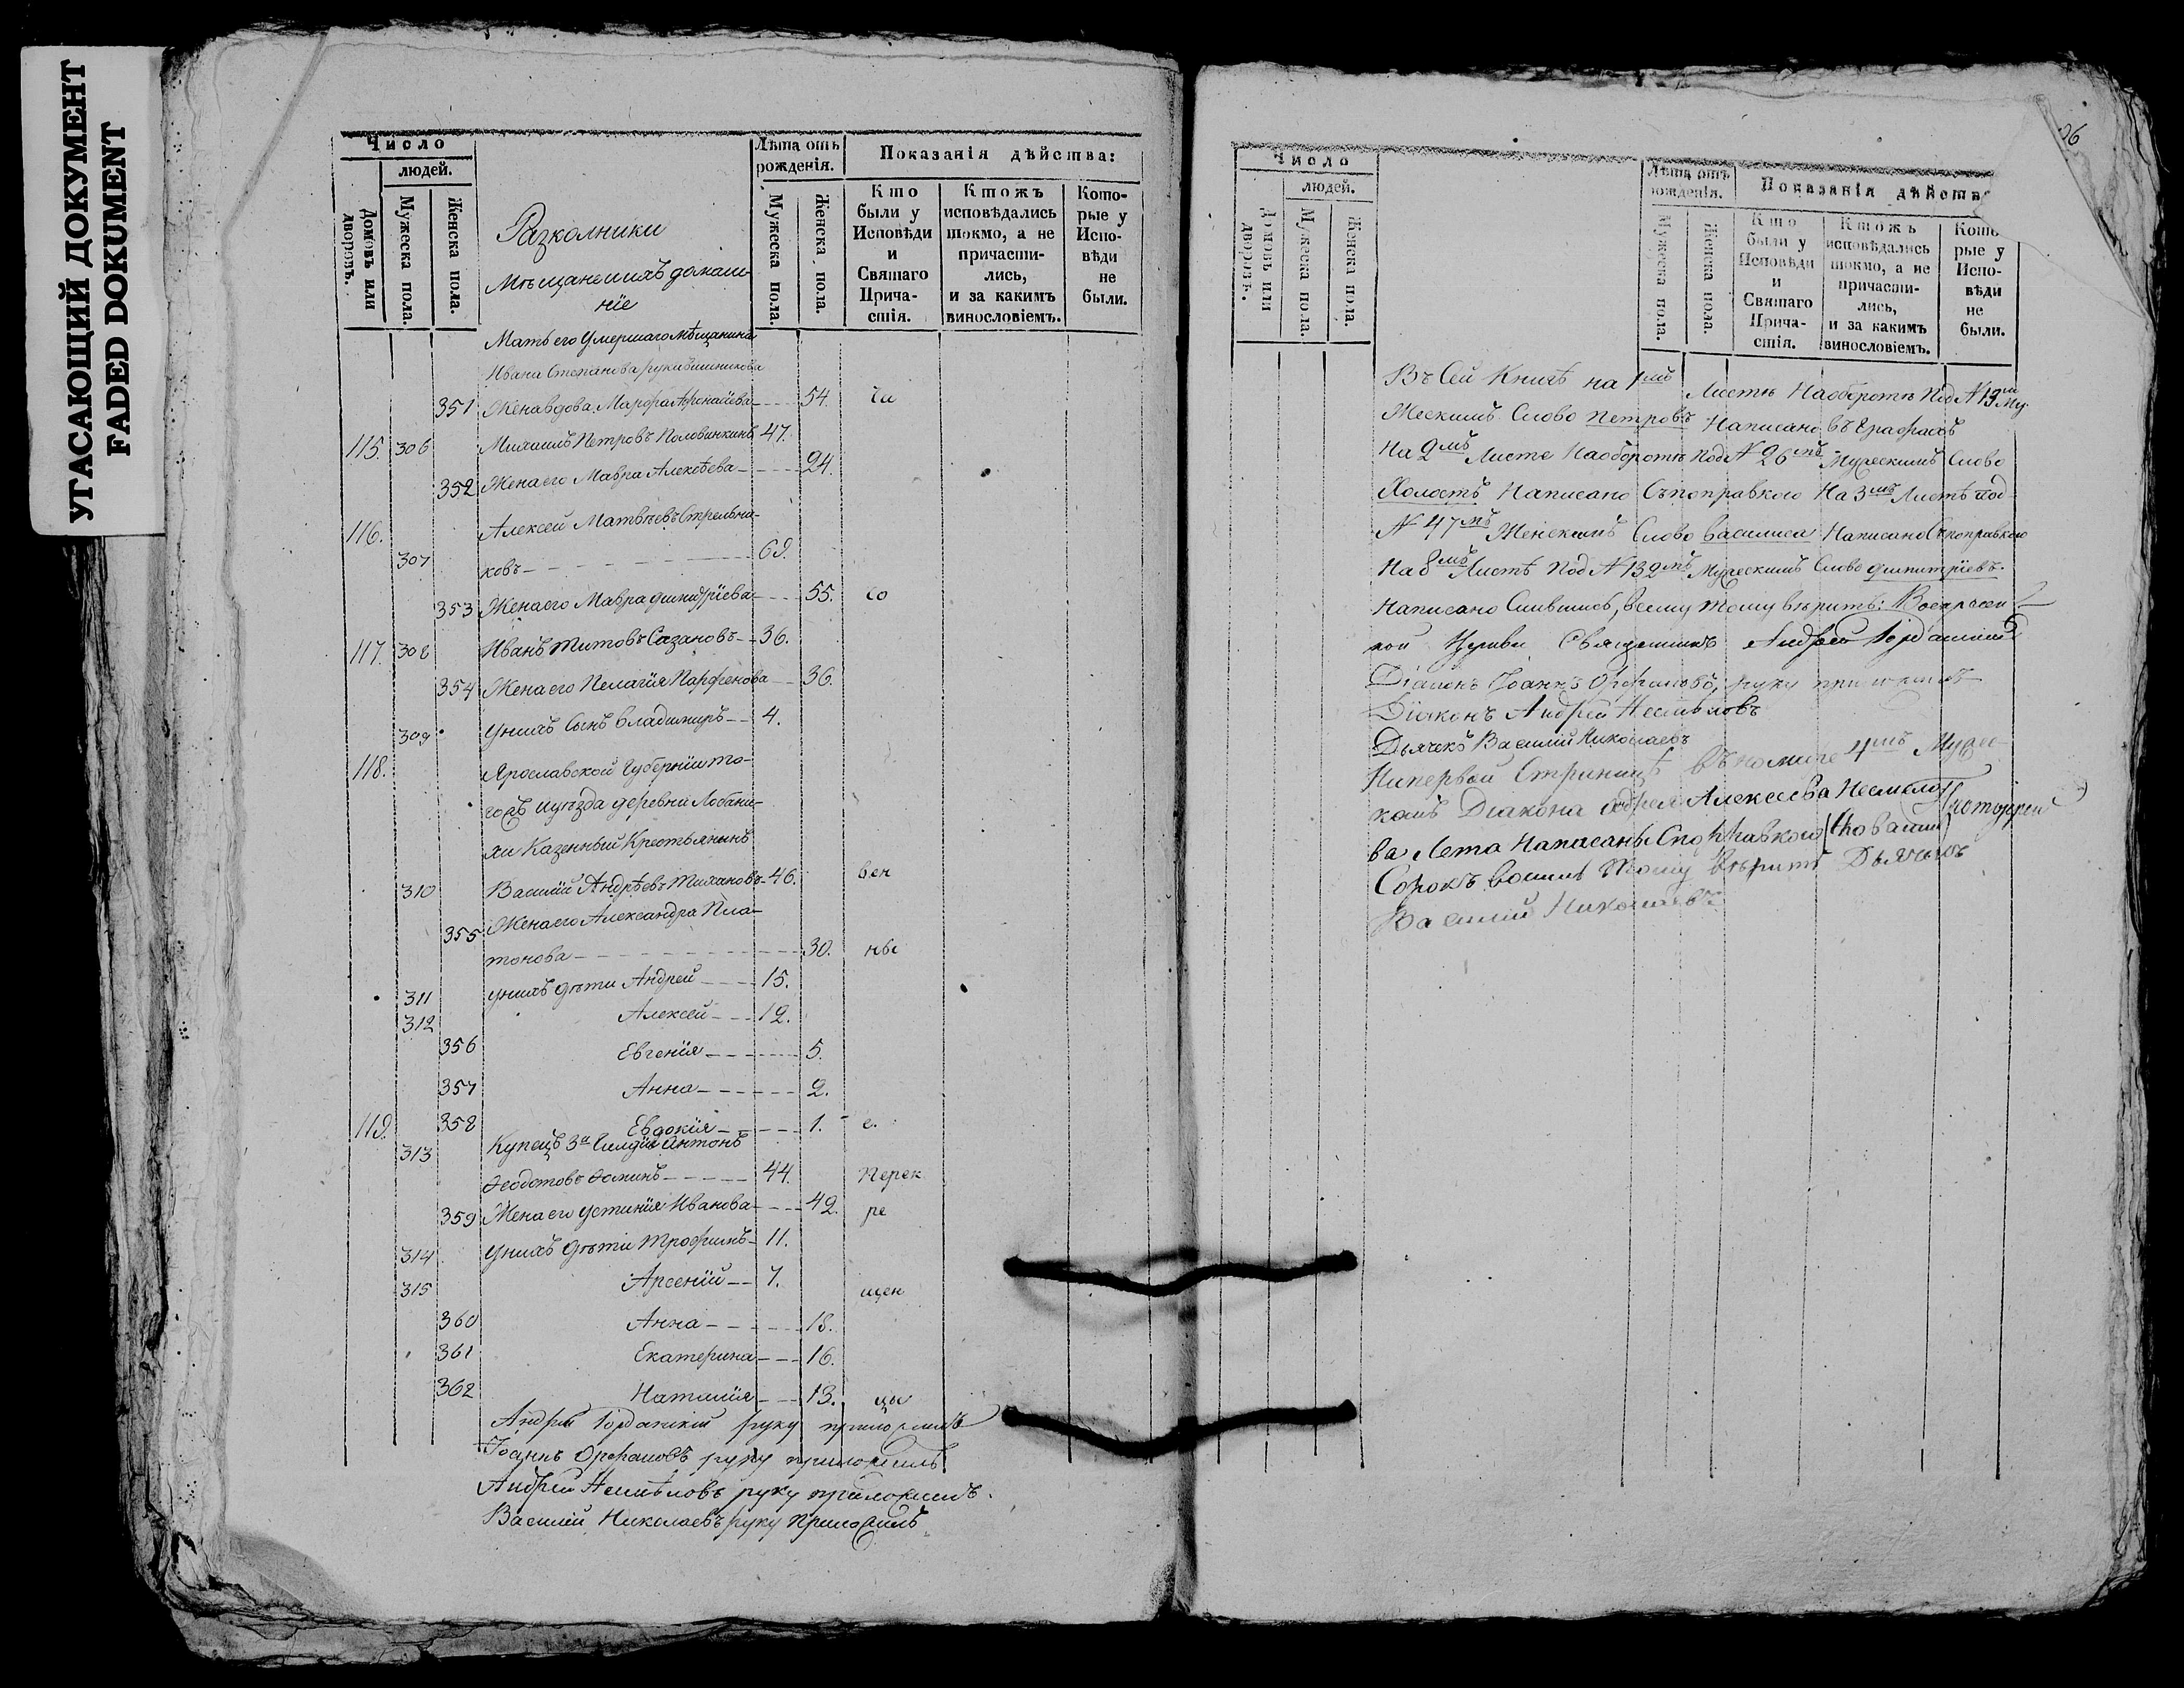 УГАСАЮЩИЙ ДОКУМЕНТ
FADED DOKUMENT
Число
людей.
Домовъ или дворовъ.
Мужеска пола.
Женска пола.
Лѣта отъ рожденія.
Мужеска пола.
Женска пола.
Показанія дѣйства:
Кто были у Исповѣди и Святаго Причастія.
Ктожъ исповѣдались токмо, а не причастились, и за какимъ винословіемъ.
Которые у Исповѣди не были.
Разколники
Мѣщане и ихъ домаш-
ніе
Мать его умершаго мѣщанина
Ивана Степанова
351 Жена вдова, Марфа Афонасіева 54.
115. 306 Михаилъ Петровъ Половинкинъ 47.
352 Жена его Мавра Алексѣева 24.
116. Алексей Матвѣевъ Стрельни-
307 ковъ 69.
353 Жена его Мавра Димитріева 55. со
117. 308 Иванъ Титовъ Сазановъ 36.
354 Жена его Пелагія Парфенова 36.
309 У нихъ сынъ Владимиръ 4.
118. Ярославской Губерніи то-
гожъ иуѣзда деревни Лобани-
хи Казенный Крестьянинъ
310 Василій Андрѣевъ Тихановъ 46. вен
355 Жена его Александра Пла-
тонова 30. ны
311 У нихъ дѣти Андрей 15.
312 Алексей 12.
356 Евгенія 5.
357 Анна 2.
358 Евдокія 1. е.
119. 313 Купецъ 3й Гилдіи Антонъ
Ѳеодотовъ Ѳоминъ 44. Перек
359 Жена его Устинія Иванова 42. ре
314 У нихъ дѣти Трофимъ 11.
315 Арсеній 7. щен
360 Анна 18.
361 Екатерина 16.
362 Наталія 13. цы
Андрей Іорданскій руку приложилъ
Іоаннъ Орфановъ руку приложилъ
Андрей Несмѣловъ руку приложилъ.
Василій Николаевъ руку приложилъ
26
Число
людей.
Домовъ или дворовъ.
Мужеска пола.
Женска пола.
Лѣта отъ рожденія.
Мужеска пола.
Женска пола.
Показанія дѣйств
Кто были у Исповѣди и Святаго Причастія.
Ктожъ исповѣдались токмо, а не причастились, и за какимъ винословіемъ.
Которые у Исповѣди не были.
Въ Сей Книгѣ на 1мъ Листѣ Наоборотѣ Под N 13мъ Му-
жескимъ Слово Петровъ Написано въ Графахъ
На 2мъ Листе Наоборотѣ Под N 26мъ Мужескимъ Слово
Холостъ Написано Съпоправкою На 3мъ Листѣ под
N 47мъ Женскимъ Слово Василиса Написано Съпоправкою
На 8мъ Листѣ Под N 132мъ Мужескимъ Слово Димитріевъ
Написано Слившись, Всему тому вѣрить: Воскресен
кой Церкви Священникъ Андрей Іорданскій
Діаконъ Іоаннъ Орфановъ, руку приложилъ
Діаконъ Андрей Несмѣловъ
Дьячекъ Василій Николаевъ
На первой Страницѣ въ номере 4мъ Мужес-
комъ Диакона Андрея Алексеева Несмело-
ва Лета Написаны Споправкою
Сорокъ восемь тому вѣрить Дьячекъ
Василій Николаевъ